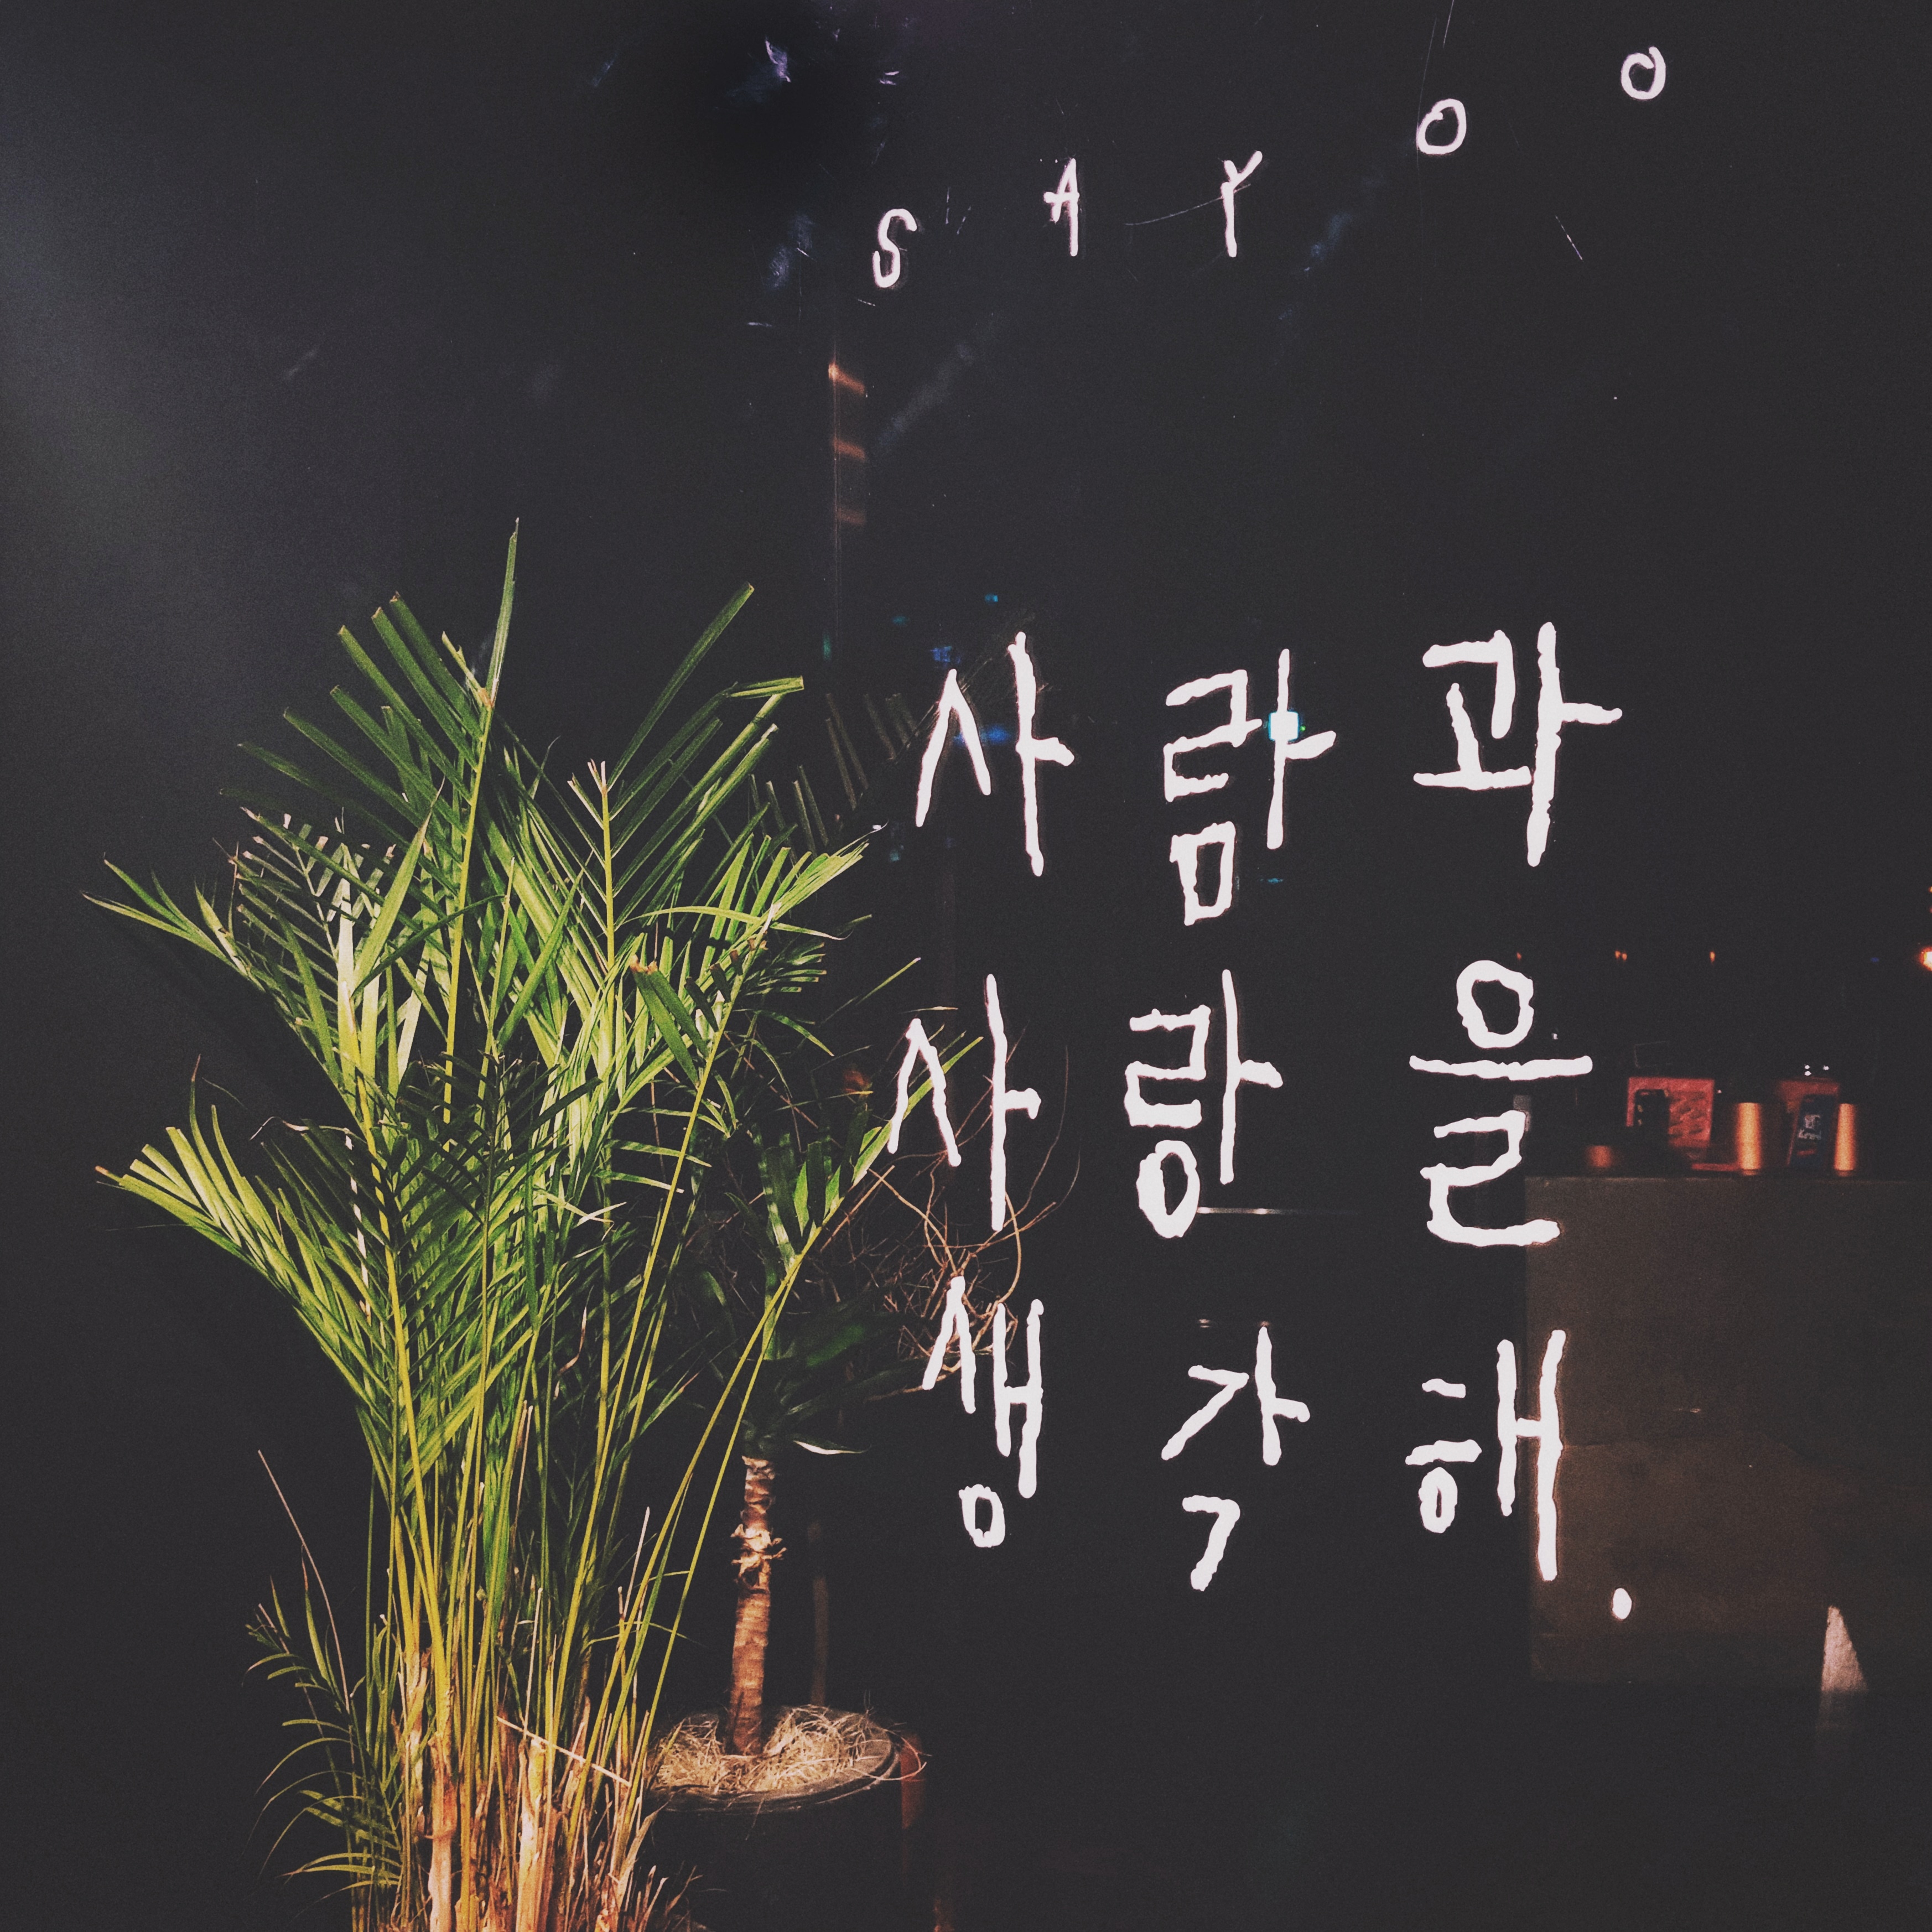 SAYOO
사람과
사랑을
생각해.